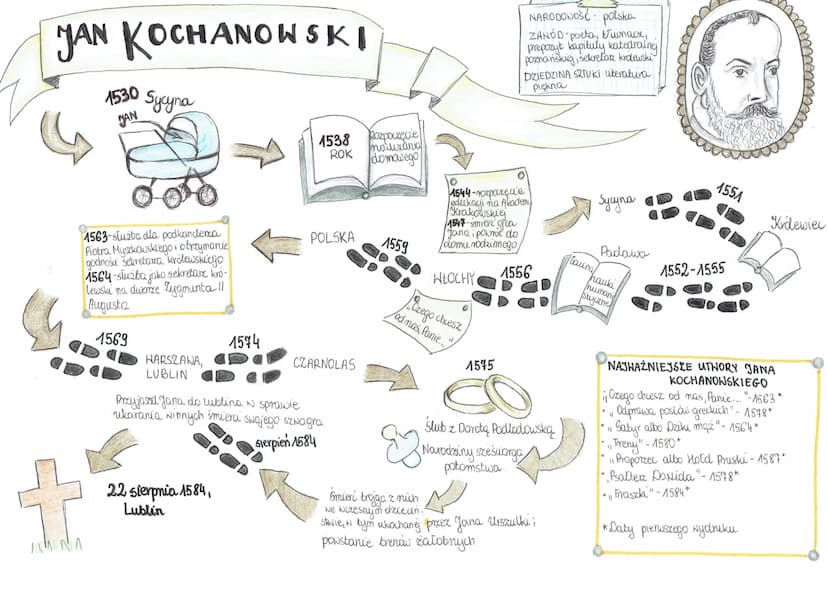 JAN KOCHANOWSKI
NARODOWOŚĆ - polska
ZAWÓD - poeta, tłumacz,
prepozyt kapituły katedralnej
poznańskiej, sekretarz królewski
DZIEDZINA SZTUKI literatura
piękna
1530 Sycyna
JAN
1538
ROK
Rozpoczęcie
nauczania
domowego
1544 - rozpoczęcie
edukacji na Akademii
Krakowskiej
1547 - śmierć ojca
Jana, powrót do
domu rodzinnego
Sycyna
1551
Królewiec
1552-1555
Padawa
nauki
humani
styczne
1556
WŁOCHY
"Czego chcesz
od nas, Panie..."
1559
POLSKA
1563 - służba dla podkanclerza
Piotra Myszkowskiego i otrzymanie
godności sekretarza królewskiego
1564 - służba jako sekretarz kró-
lewski na dworze Zygmunta II
Augusta
1569
WARSZAWA,
LUBLIN
1574
CZARNOLAS
1575
Ślub z Dorotą Podlodowską
Narodziny sześciorga
potomstwa
Śmierć trojga z nich
we wczesnym dzieciń-
stwie, w tym ukochanej przez Jana Urszulki i
powstanie trenów żałobnych
Przyjazd Jana do Lublina w sprawie
ukarania winnych śmierci swojego szwagra
sierpień 1584
22 sierpnia 1584,
Lublin
NAJWAŻNIEJSZE UTWORY JANA
KOCHANOWSKIEGO
"Czego chcesz od nas, Panie..." - 1563*
• "Odprawa posłów greckich" - 1578*
• "Satyr albo Dziki mąż" - 1564*
• "Treny" - 1580*
• "Proporzec albo Hołd Pruski - 1587*
• "Psałterz Dawida" - 1578*
• "Fraszki" - 1584*
* Daty pierwszego wydruku